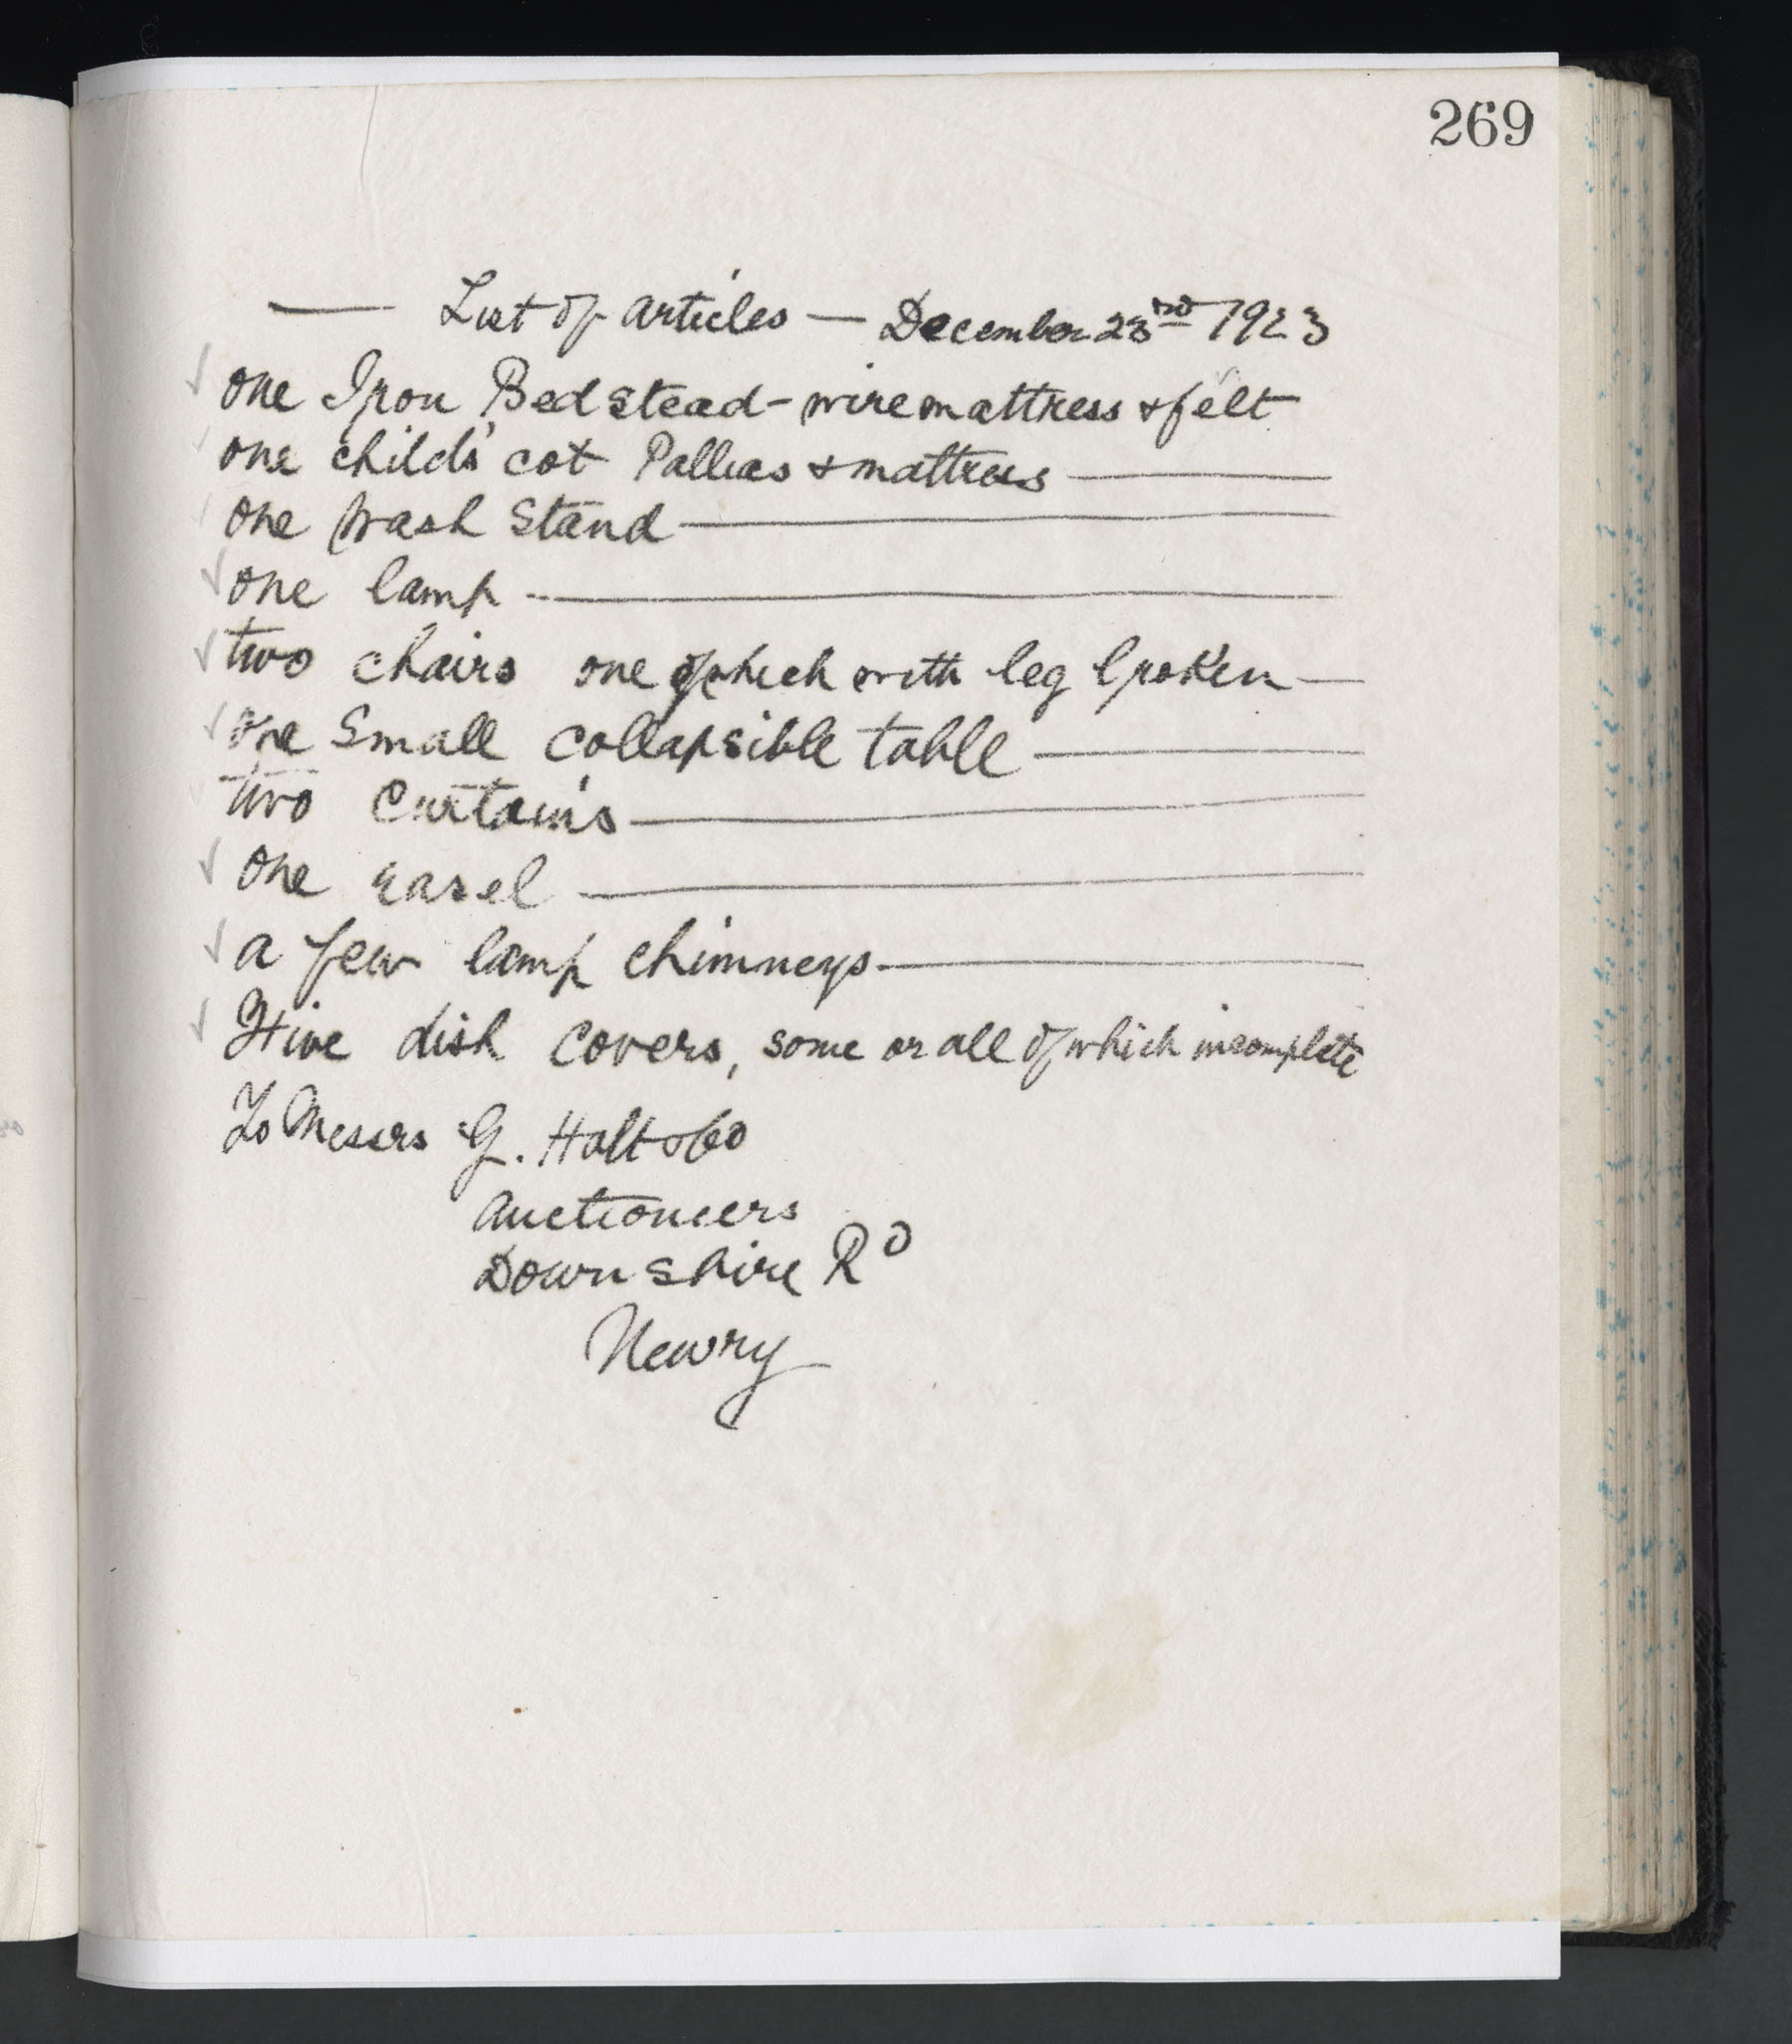 269
— List of articles — December 23rd 1923
one Iron Bedstead - wire mattress & felt
one child's cot Pallias & mattress —
one wash stand —
one lamp —
two chairs one of which with leg broken —
one small collapsible table —
two curtains —
one easel —
a few lamp chimneys —
Five dish covers, some or all of which incomplete
To Messrs G. Halt & Co
Auctioneers
Downshire Rd
Newry